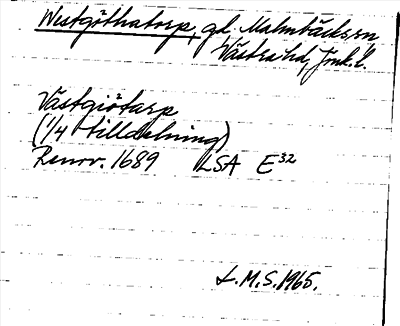 Westgöthatorp, gd, Malmbäcks sn
Västra hd, Jönk. l.
Västgiötarp
(1/4 tilldelning)
Renov. 1689 LSA E32
L.M.S. 1965.